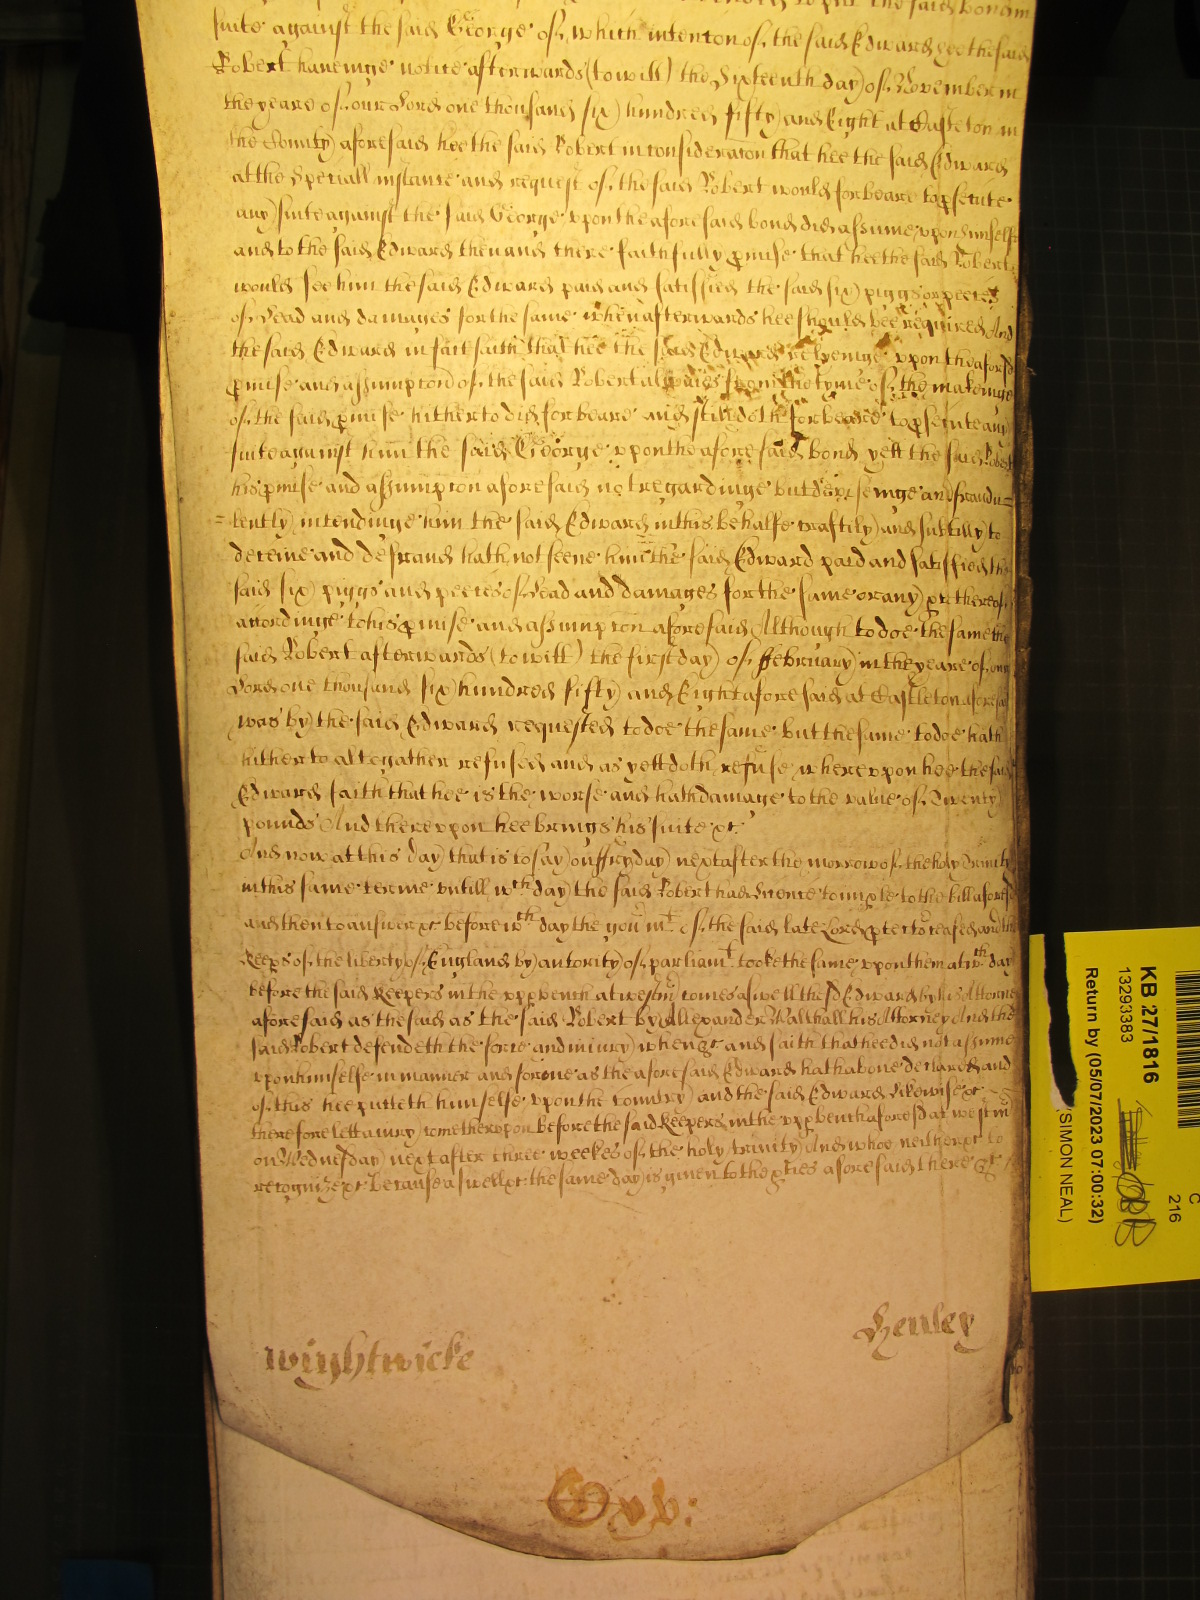 to put the said bond in
suite against the said George of which intencon of the said Edward hee the said
Robert haveinge notice afterwards (to witt) the Sixteenth day of November in
the yeare of our Lord one thousand six hundred fifty and Eight at Castleton in
the County aforesaid hee the said Robert in consideracon that hee the said Edward
at the Speciall instance and request of the said Robert would forbeare to psecute
any suite against the said George upon the aforesaid bond did assume upon himselfe
and to the said Edward then and there faithfully pmise that hee the said Robert
would see him the said Edward paid and satisfied the said six piggs or peeces
of Lead and damages for the same when afterwards hee should bee required And
the said Edward in fact saith that hee the said Edward relyeinge upon the aforesd
pmise and assumpcon of the said Robert alwaies from the tyme of the makeinge
of the said pmise hitherto did forbeare and still doth forbeare to psecute any
suite against him the said George upon the aforesaid bond yett the said Robert
his pmise and assumpcon aforesaid not regardinge but deviseinge and fraudu=
=lently intendinge him the said Edward in this behalfe craftily and suttilly to
deceive and defraud hath not seene him the said Edward paid and satisfied the
said six piggs and peeces of Lead and damages for the same or any pt thereof
accordinge to his pmise and assumpcon aforesaid Although to doe the same the
said Robert afterwards (to witt) the first day of ffebruary in the yeare of our
Lord one thousand six hundred fifty and Eight aforesaid at Castleton aforesaid
was by the said Edward requested to doe the same but the same to doe hath
hitherto altogather refused and as yett doth refuse whereupon hee the said
Edward saith that hee is the worse and hath damage to the value of Twenty
pounds And thereupon hee brings his suite &c.
And now at this day that is to say on ffryday next after the morrow of the holy Trinity
in this same terme untill wch day the said Robert had Licence to imple to the bill aforesd
and then to answer &c before wch day the govmt of the said late Lord ptector ceased and the
Keeps of the liberty of England by autority of parliamt tooke the same upon them at wch day
before the said Keepers in the upp bench at westm comes aswell the sd Edward by his Attorney
aforesaid as the said as the said Robert by Allexander Walthall his Attorney And the
said Robert defendeth the force and iniury when &c and saith that hee did not assume
upon himselfe in manner and forme as the aforesaid Edward hath above declared and
of this hee putteth himselfe upon the country and the said Edward likewise &c
therefore lett a iury come thereupon before the said Keepers in the upp bench aforesd at westm
on Wednesday next after three weekes of the holy trinity And whoe neither &c to
recognize &c because aswell &c the same day is given to the pties aforesaid there &c
Wightwicke
Henley
Oxb:
KB 27/1816
13293383
Return by (05/07/2023 07:00:32)
(SIMON NEAL)
C
216